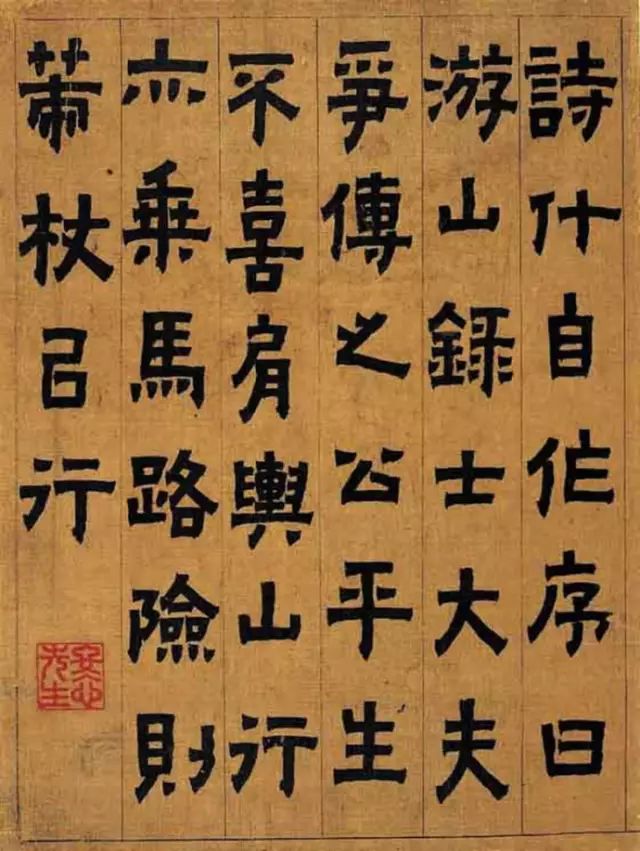 詩什自作序曰
游山錄士大夫
爭傳之公平生
不喜肩輿山行
亦乘馬路險則
策杖㠯行
冬心先生